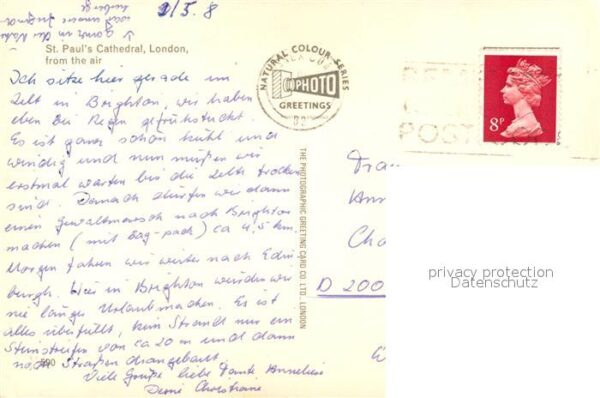 St. Paul's Cathedral, London,
from the air
Ich sitze hier gerade im
Zelt in Brighton, wir haben
eben bei Regen gefrühstückt.
Es ist ganz schön kühl und
windig und nun müßen wir
erstmal warten bis die Zelte trocken
sind. Danach dürfen wir dann
einen Gewaltmarsch nach Brighton
machen (mit bag-pack) ca 4,5 km.
Morgen fahren wir weiter nach Edin
burgh. Hier in Brighton würden wir
nie länger Urlaub machen. Es ist
alles überfüllt, kein Strand nur ein
Steinstreifen von ca 20 m und dann
noch Straßen drangebaut.
Viele Grüße liebe Tante Anneliese
NATURAL COLOUR SERIES
PHOTO
GREETINGS
THE PHOTOGRAPHIC GREETING CARD CO. LTD., LONDON
8P
POST
D 200
privacy protection
Datenschutz